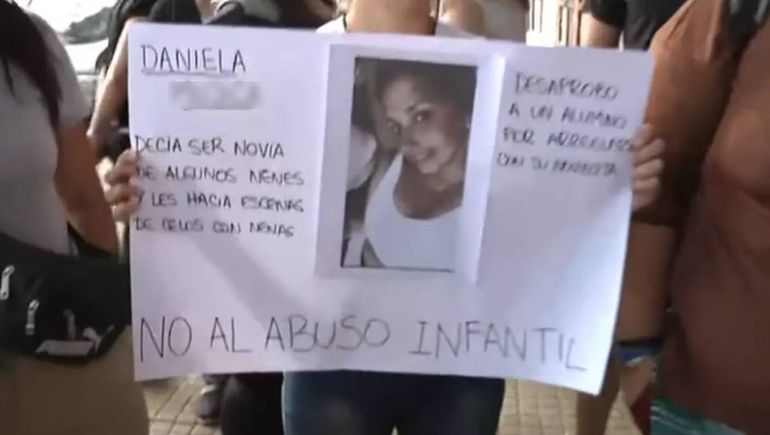 DANIELA
DECIA SER NOVIA
DE ALGUNOS NENES
Y LES HACIA ESCENAS
DE CELOS CON NENAS
DESAPROBO
A UN ALUMNO
POR
CON SU
NO AL ABUSO INFANTIL